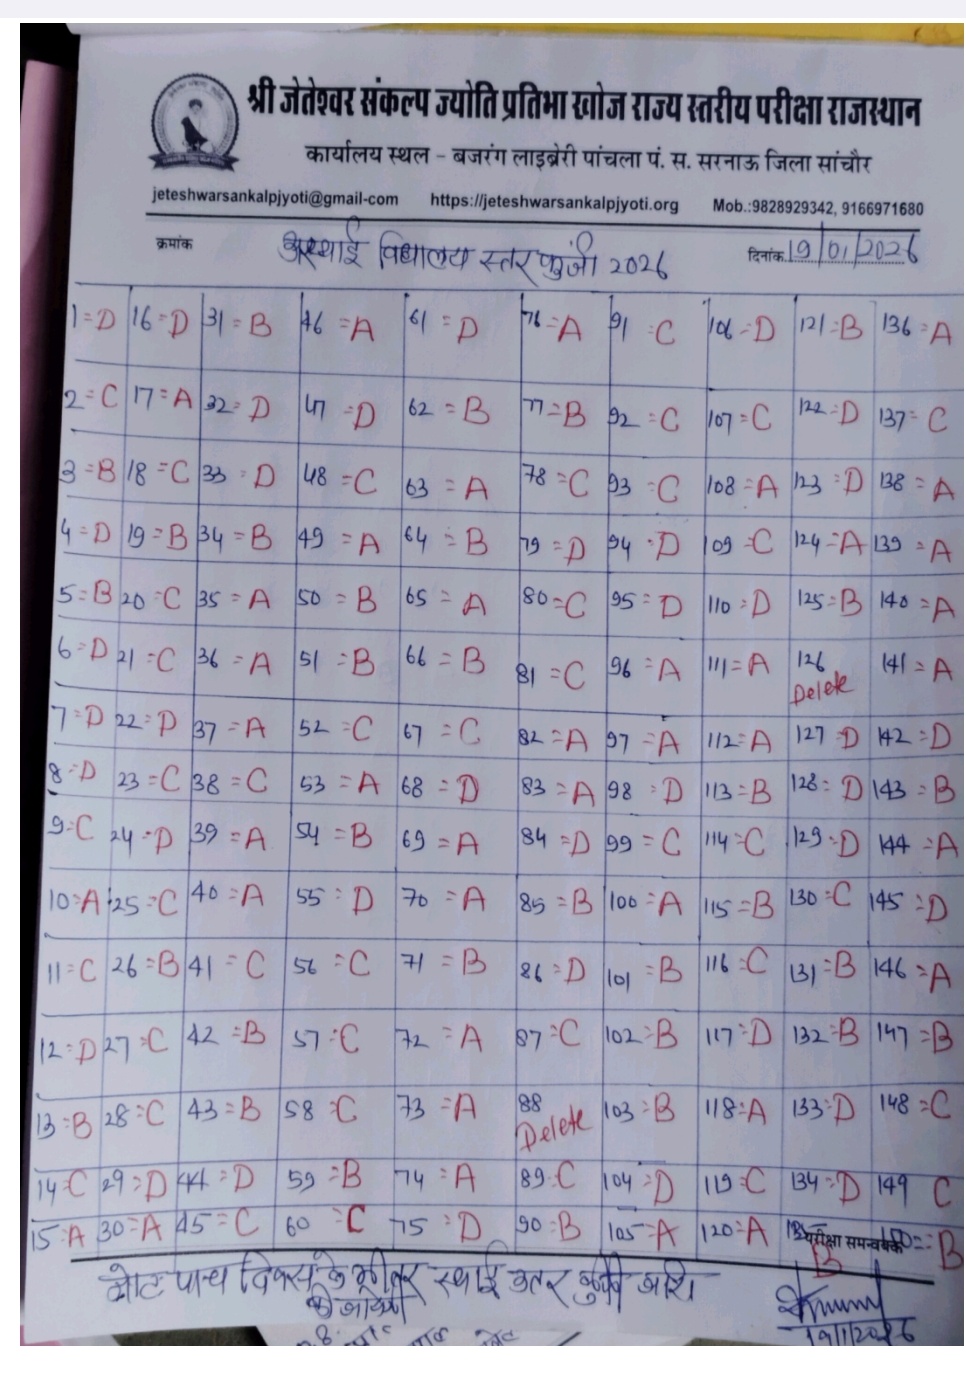 श्री जेतेश्वर संकल्प ज्योति प्रतिभा खोज राज्य स्तरीय परीक्षा राजस्थान
कार्यालय स्थल - बजरंग लाइब्रेरी पांचला पं. स. सरनाऊ जिला सांचौर
jeteshwarsankalpjyoti@gmail-com https://jeteshwarsankalpjyoti.org Mob.:9828929342, 9166971680
क्रमांक अस्थाई विद्यालय स्तर कुंजी 2026 दिनांक 19/01/2026
1=D 16=D 31=B 46=A 61=D 76=A 91=C 106=D 121=B 136=A
2=C 17=A 32=D 47=D 62=B 77=B 92=C 107=C 122=D 137=C
3=B 18=C 33=D 48=C 63=A 78=C 93=C 108=A 123=D 138=A
4=D 19=B 34=B 49=A 64=B 79=D 94=D 109=C 124=A 139=A
5=B 20=C 35=A 50=B 65=A 80=C 95=D 110=D 125=B 140=A
6=D 21=C 36=A 51=B 66=B 81=C 96=A 111=A 126 Delete 141=A
7=D 22=D 37=A 52=C 67=C 82=A 97=A 112=A 127=D 142=D
8=D 23=C 38=C 53=A 68=D 83=A 98=D 113=B 128=D 143=B
9=C 24=D 39=A 54=B 69=A 84=D 99=C 114=C 129=D 144=A
10=A 25=C 40=A 55=D 70=A 85=B 100=A 115=B 130=C 145=D
11=C 26=B 41=C 56=C 71=B 86=D 101=B 116=C 131=B 146=A
12=D 27=C 42=B 57=C 72=A 87=C 102=B 117=D 132=B 147=B
13=B 28=C 43=B 58=C 73=A 88 Delete 103=B 118=A 133=D 148=C
14=C 29=D 44=D 59=B 74=A 89=C 104=D 119=C 134=D 149 C
15=A 30=A 45=C 60=C 75=D 90=B 105=A 120=A 135 B 150=B
परीक्षा समन्वयक
नोट पाच दिवस के भीतर स्थाई उतर कुंजी जारी
की जायेगी
19/1/2026